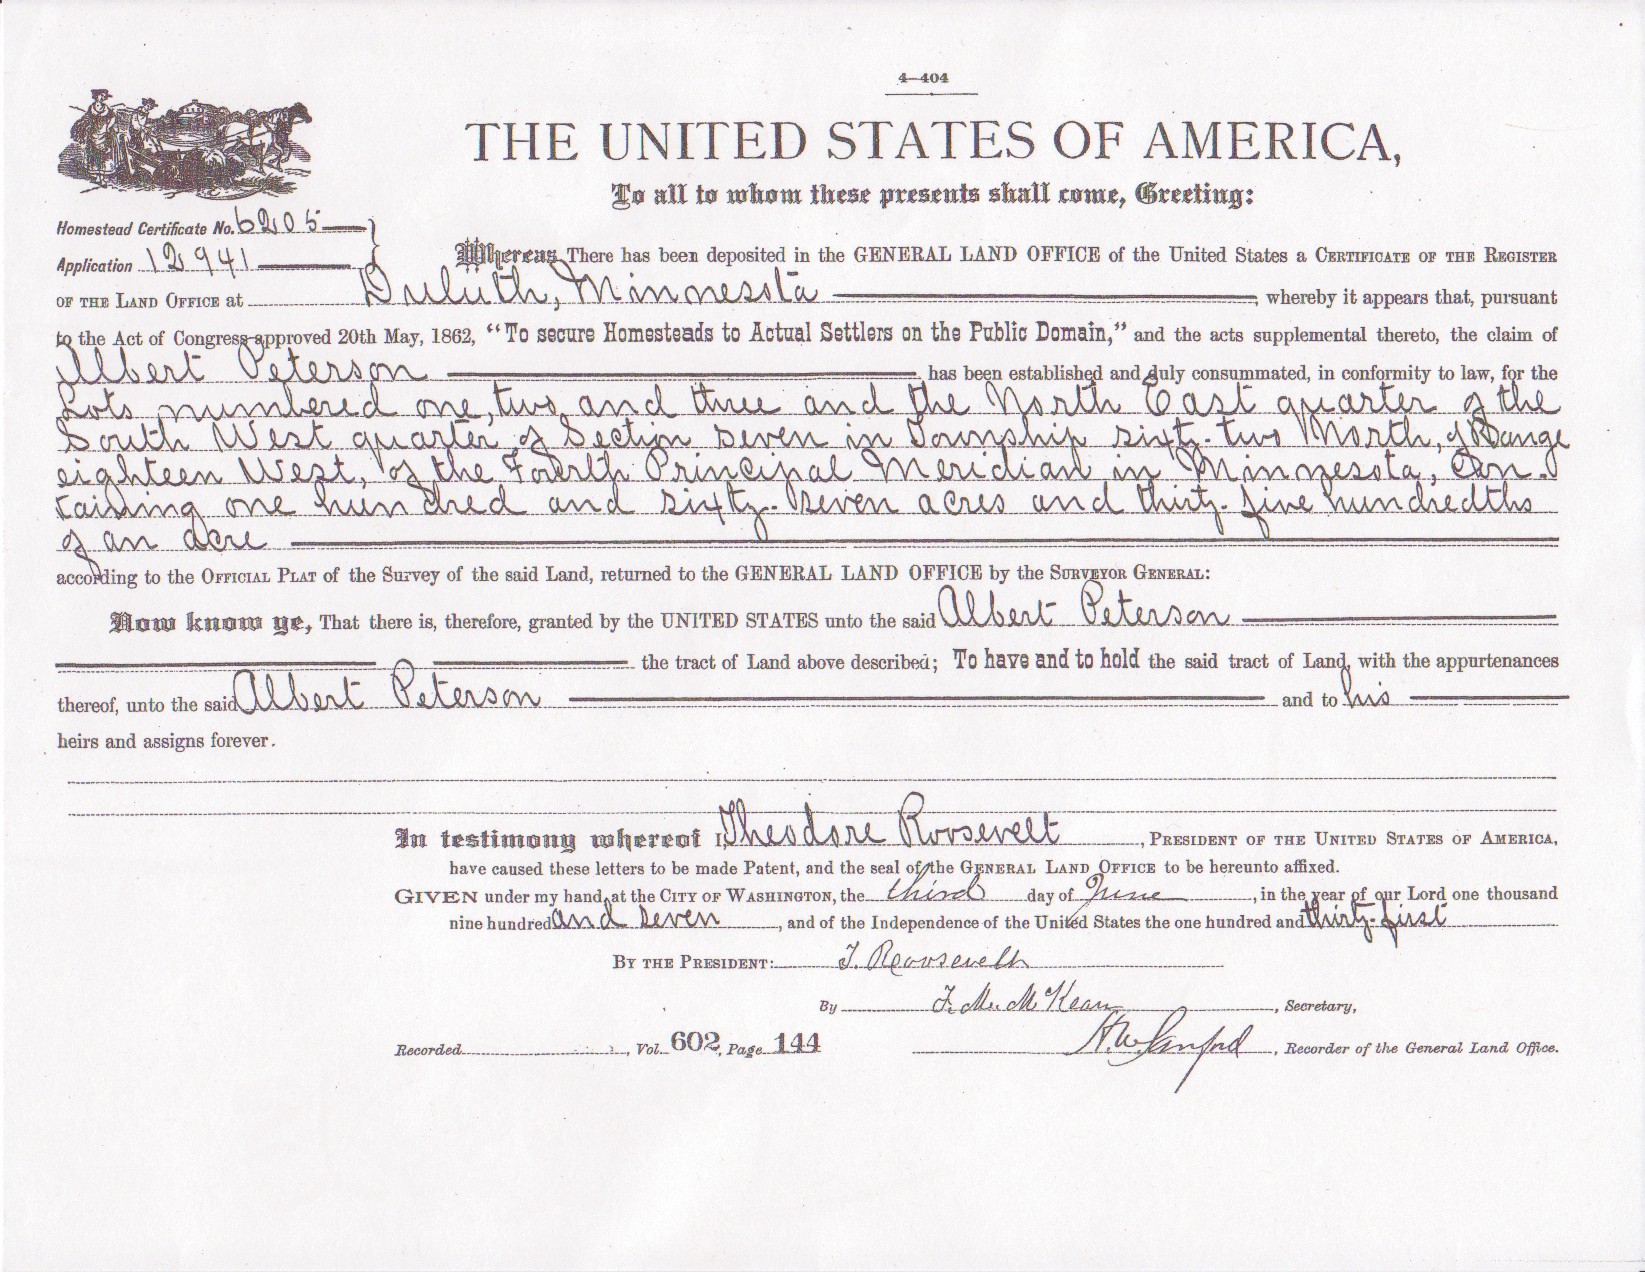 4—404
THE UNITED STATES OF AMERICA,
To all to whom these presents shall come, Greeting:
Homestead Certificate No. 6205
Application 12941
Whereas There has been deposited in the GENERAL LAND OFFICE of the United States a CERTIFICATE OF THE REGISTER
OF THE LAND OFFICE at Duluth, Minnesota, whereby it appears that, pursuant
to the Act of Congress approved 20th May, 1862, “To secure Homesteads to Actual Settlers on the Public Domain,” and the acts supplemental thereto, the claim of
Albert Peterson has been established and duly consummated, in conformity to law, for the
Lots numbered one, two, and three and the North East quarter of the
South West quarter of Section seven in Township sixty-two North, of Range
eighteen West, of the Fourth Principal Meridian in Minnesota, Con-
taining one hundred and sixty-seven acres and thirty-five hundredths
of an acre
according to the OFFICIAL PLAT of the Survey of the said Land, returned to the GENERAL LAND OFFICE by the SURVEYOR GENERAL:
Now know ye, That there is, therefore, granted by the UNITED STATES unto the said Albert Peterson
the tract of Land above described; To have and to hold the said tract of Land, with the appurtenances
thereof, unto the said Albert Peterson and to his
heirs and assigns forever.
In testimony whereof I, Theodore Roosevelt, PRESIDENT OF THE UNITED STATES OF AMERICA,
have caused these letters to be made Patent, and the seal of the GENERAL LAND OFFICE to be hereunto affixed.
GIVEN under my hand, at the CITY OF WASHINGTON, the third day of June, in the year of our Lord one thousand
nine hundred and seven, and of the Independence of the United States the one hundred and thirty-first
BY THE PRESIDENT: T. Roosevelt
By F. M. McKean, Secretary,
Recorded, Vol. 602, Page 144
H. W. Sanford, Recorder of the General Land Office.